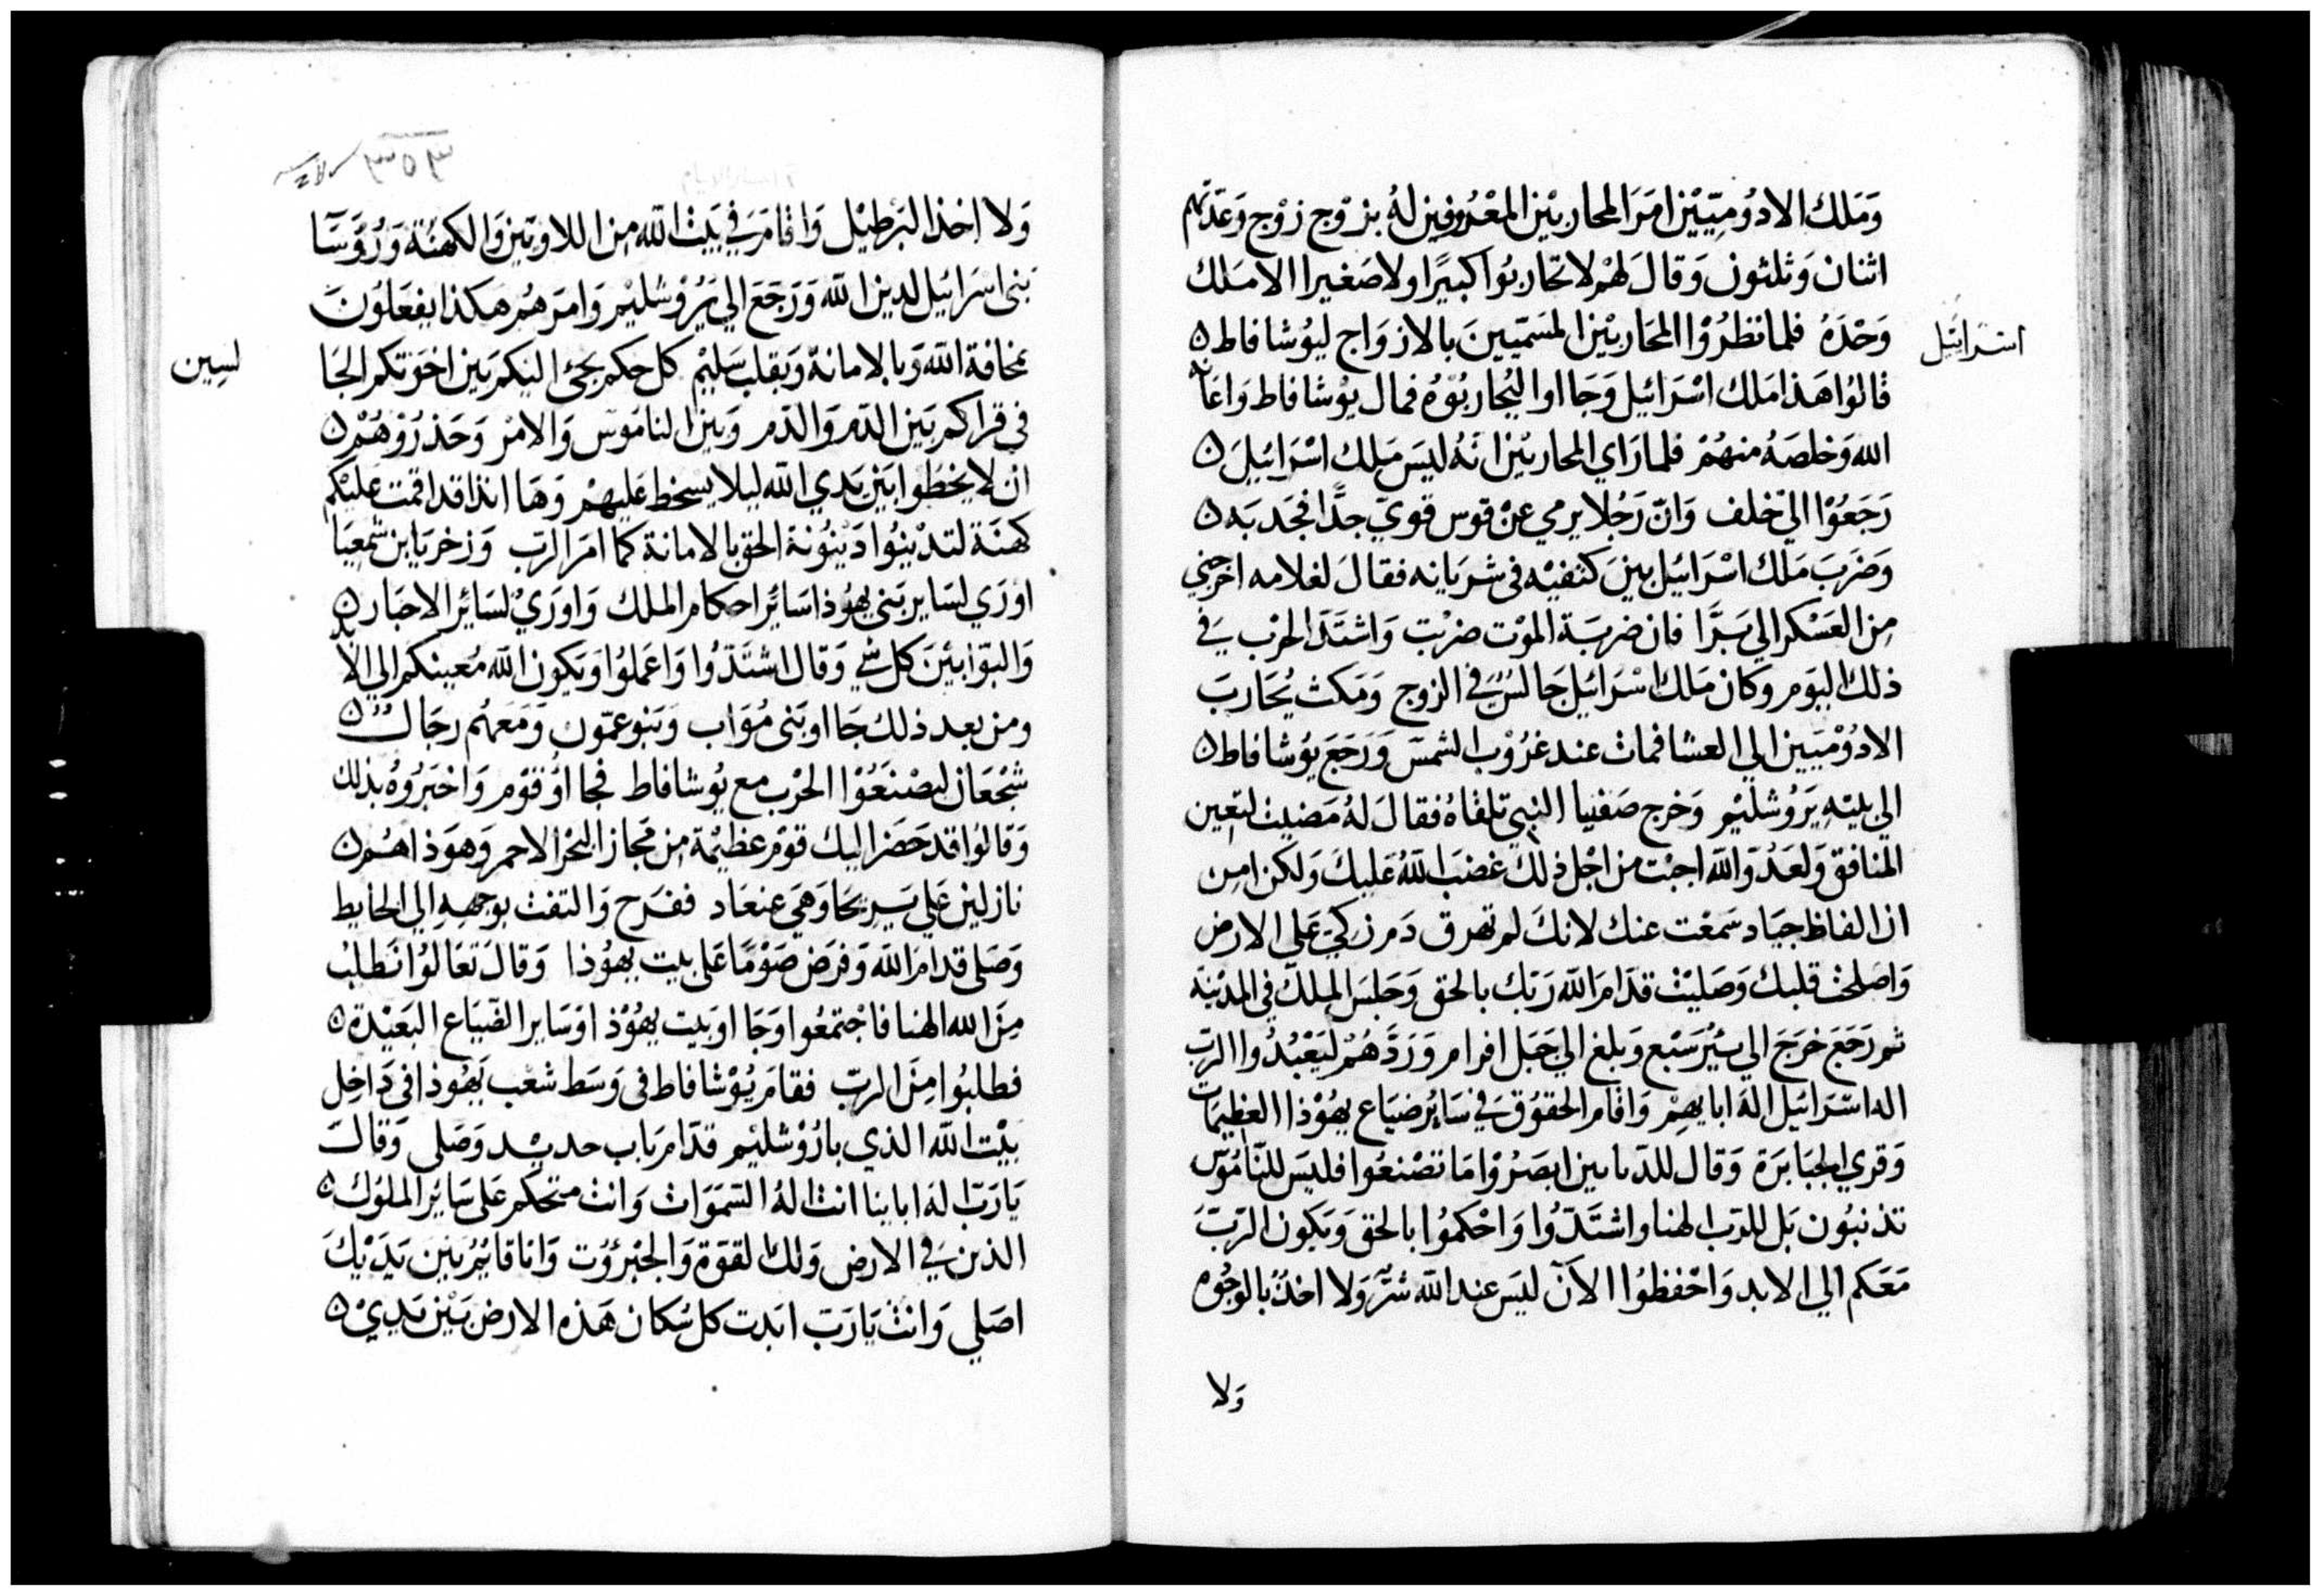 وَمَلك الادوُمِيّيْن امَرَ المحاربيْن المعْروفين لهُ بزوْج زوْج وَعدّتهم
اثنان وَثلثون وَقالَ لهْم لا تحاربوُا كبيرًا ولا صَغيرا الا مَلك
اسرائيل
وَحْدَهُ فلما نظرُوْا المحَاربيْن المسَميّينَ بالازوَاج ليوُشافاط
قالوُا هَذا مَلك اسْرَائيل وَجَااوا ليُحاربوُهُ فمال يوُشافاط وَاعَانه
الله وَخلصَهُ منهُمْ فلما رَاي المحاربيْن انهُ ليسَ مَلك اسْرَائيلَ
رَجَعُوْا الي خلف وَانّ رَجُلا يرمي عنْ قوس قويّ جدًّا فجَدبَه
وَضرَبَ مَلك اسْرَائيل بينَ كتفيْه في شريَانه فقالَ لغلامه اخرجني
من العَسْكر الي بَرَّا فان ضربَة الموْت ضربْت وَاشتدّ الحرْب في
ذلك اليوَم وكان مَلك اسْرَائيل جَالسًْ في الزوج وَمَكث يُحَاربَ
الادوُمْييين الي العشا فمات عند غرُوْب الشمسَ وَرَجَعَ يوُشافاط
الي بيتهِ يَرَوُشليْم وَخرج صَفنيا النبي تلقاهُ فقالَ لهُ مَضيت لتعين
المنافق وَلعَدوّ الله اجبْت من اجْل ذلكَ غضبَ اللهُ عَليكَ وَلكن امِن
اذ الفاظ جيَاد سَمعْت عنك لانكَ لم تهرق دَم زكيّ عَلى الارض
وَاصَلحت قلبك وَصَليْت قدّامَ الله رَبّك بالحق وَجَلسَ الملك في المدْينَة
ثم رَجَعَ خرَجَ الي بئيْر سَبْع وَبلغ الي جَبَل افرام وَرَدّهُمْ ليَعْبُدُوا الربّ
اله اسْرَائيل الهَ ابايهِمْ وَاقام الحقوُق في سَائر ضيَاع يهوُذا العظيمَات
وَقري الجبَابرَة وَقال للديانين ابصَرُوْا مَا تصْنعُوا فليسَ للناموُس
تذنبوُن بَل للربّ الهنا واشتدّوا وَاحْكموُا بالحق وَيكون الربّ
مَعَكم الي الابد وَاحْفظوُا الآنّ ليسَ عند الله شرّ وَلا اخذ بالوجُوه
وَلا
وَلا اخذ البَرطيْل وَاقامَ في بَيْت الله من اللاويّين وَالكهنَة وَرُؤسَآ
بَني اسْرَائيل لدين الله وَرَجَعَ الي يَرُوْشليْم وَامرَهُم هكذا يفعَلوُنَ
بمخافة الله وَبالامانة وَبقلب سَليْم كل حكم يجيْ اليْكم بيَن اخوَتكم الجَا
لسين
في قراكم بَين الدّم وَالدّم وَبيْن الناموْس وَالامْر وَحَذرُوْهُمْ
ان لا يخطوا بَيْن يَدي الله ليلا يسخط عَليهمْ وَهَا انذا قد اقمت عَليْكم
كهنَة لتدْينوُا دَيْنوُنة الحق بالامانة كما امَرَ الربّ وَزخريَا بن شمْعيَا
اورَي لسَاير بَني يهوُذا سَائرَ احكام الملك وَاورَيْ لسَائر الاحبَار
وَالبوّابيْنَ كل شي وَقال اشتدّوُا وَاعملوُا وَيكون الله مُعينكم الي الابد
ومن بعد ذلكَ جَااو بَني مُوَاب وَبَنو عمّون وَمَعهُم رجَالٌ
شجْعَان ليصْنعَوُا الحْرب مع يوُشافاط فجااوُ قوْم وَاخبرُوهُ بذلك
وَقالوُا قد حَضرَ اليك قوْم عظيْمة من مَجاز البَحْر الاحمر وَهوَذا همُ
نازلين عَلي يَريحَا وَهيَ عنعَاد ففرَح وَالتفت بوَجههِ الي الحايط
وَصَلي قدامَ الله وَفرَض صَوْمًا عَلي بيت يهوُذا وَقالَ تعَالوُا نَطلبُ
مِنَ الله الهنا فاجْتمعُوا وَجَااو بَيت يهوُذا وَسَاير الضيَاع البَعيْدة
فطلبوُا مِنَ الربّ فقامَ يوُشافاط في وَسَط شعْب يَهوُذا في دَاخِل
بيْت الله الذي باروُشليْم قدّام بَاب حديْد وَصَلي وَقالَ
يَا رَبّ اله ابَاينا انت الهُ السَّمَوَات وَانت متحكم عَلي سَائر الملوُك
الذين في الارض وَلك القوّة وَالجبْرُوت وَانا قائيم بَين يَديْكَ
اصَلي وَانت يَا رَبّ ابَدت كل سُكان هَذه الارض بَيْن يَديْ